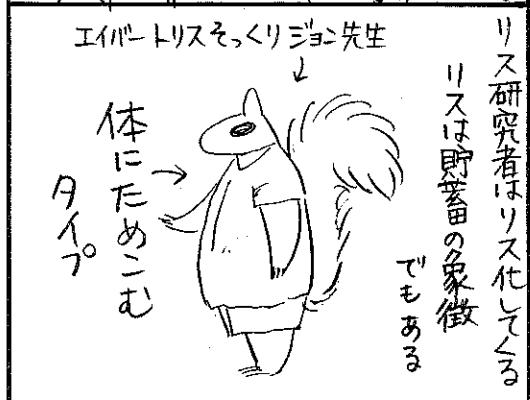 リス研究者はリス化してくる
リスは貯蓄の象徴
でもある
エイバートリスそっくりジョン先生
体にためこむ
タイプ